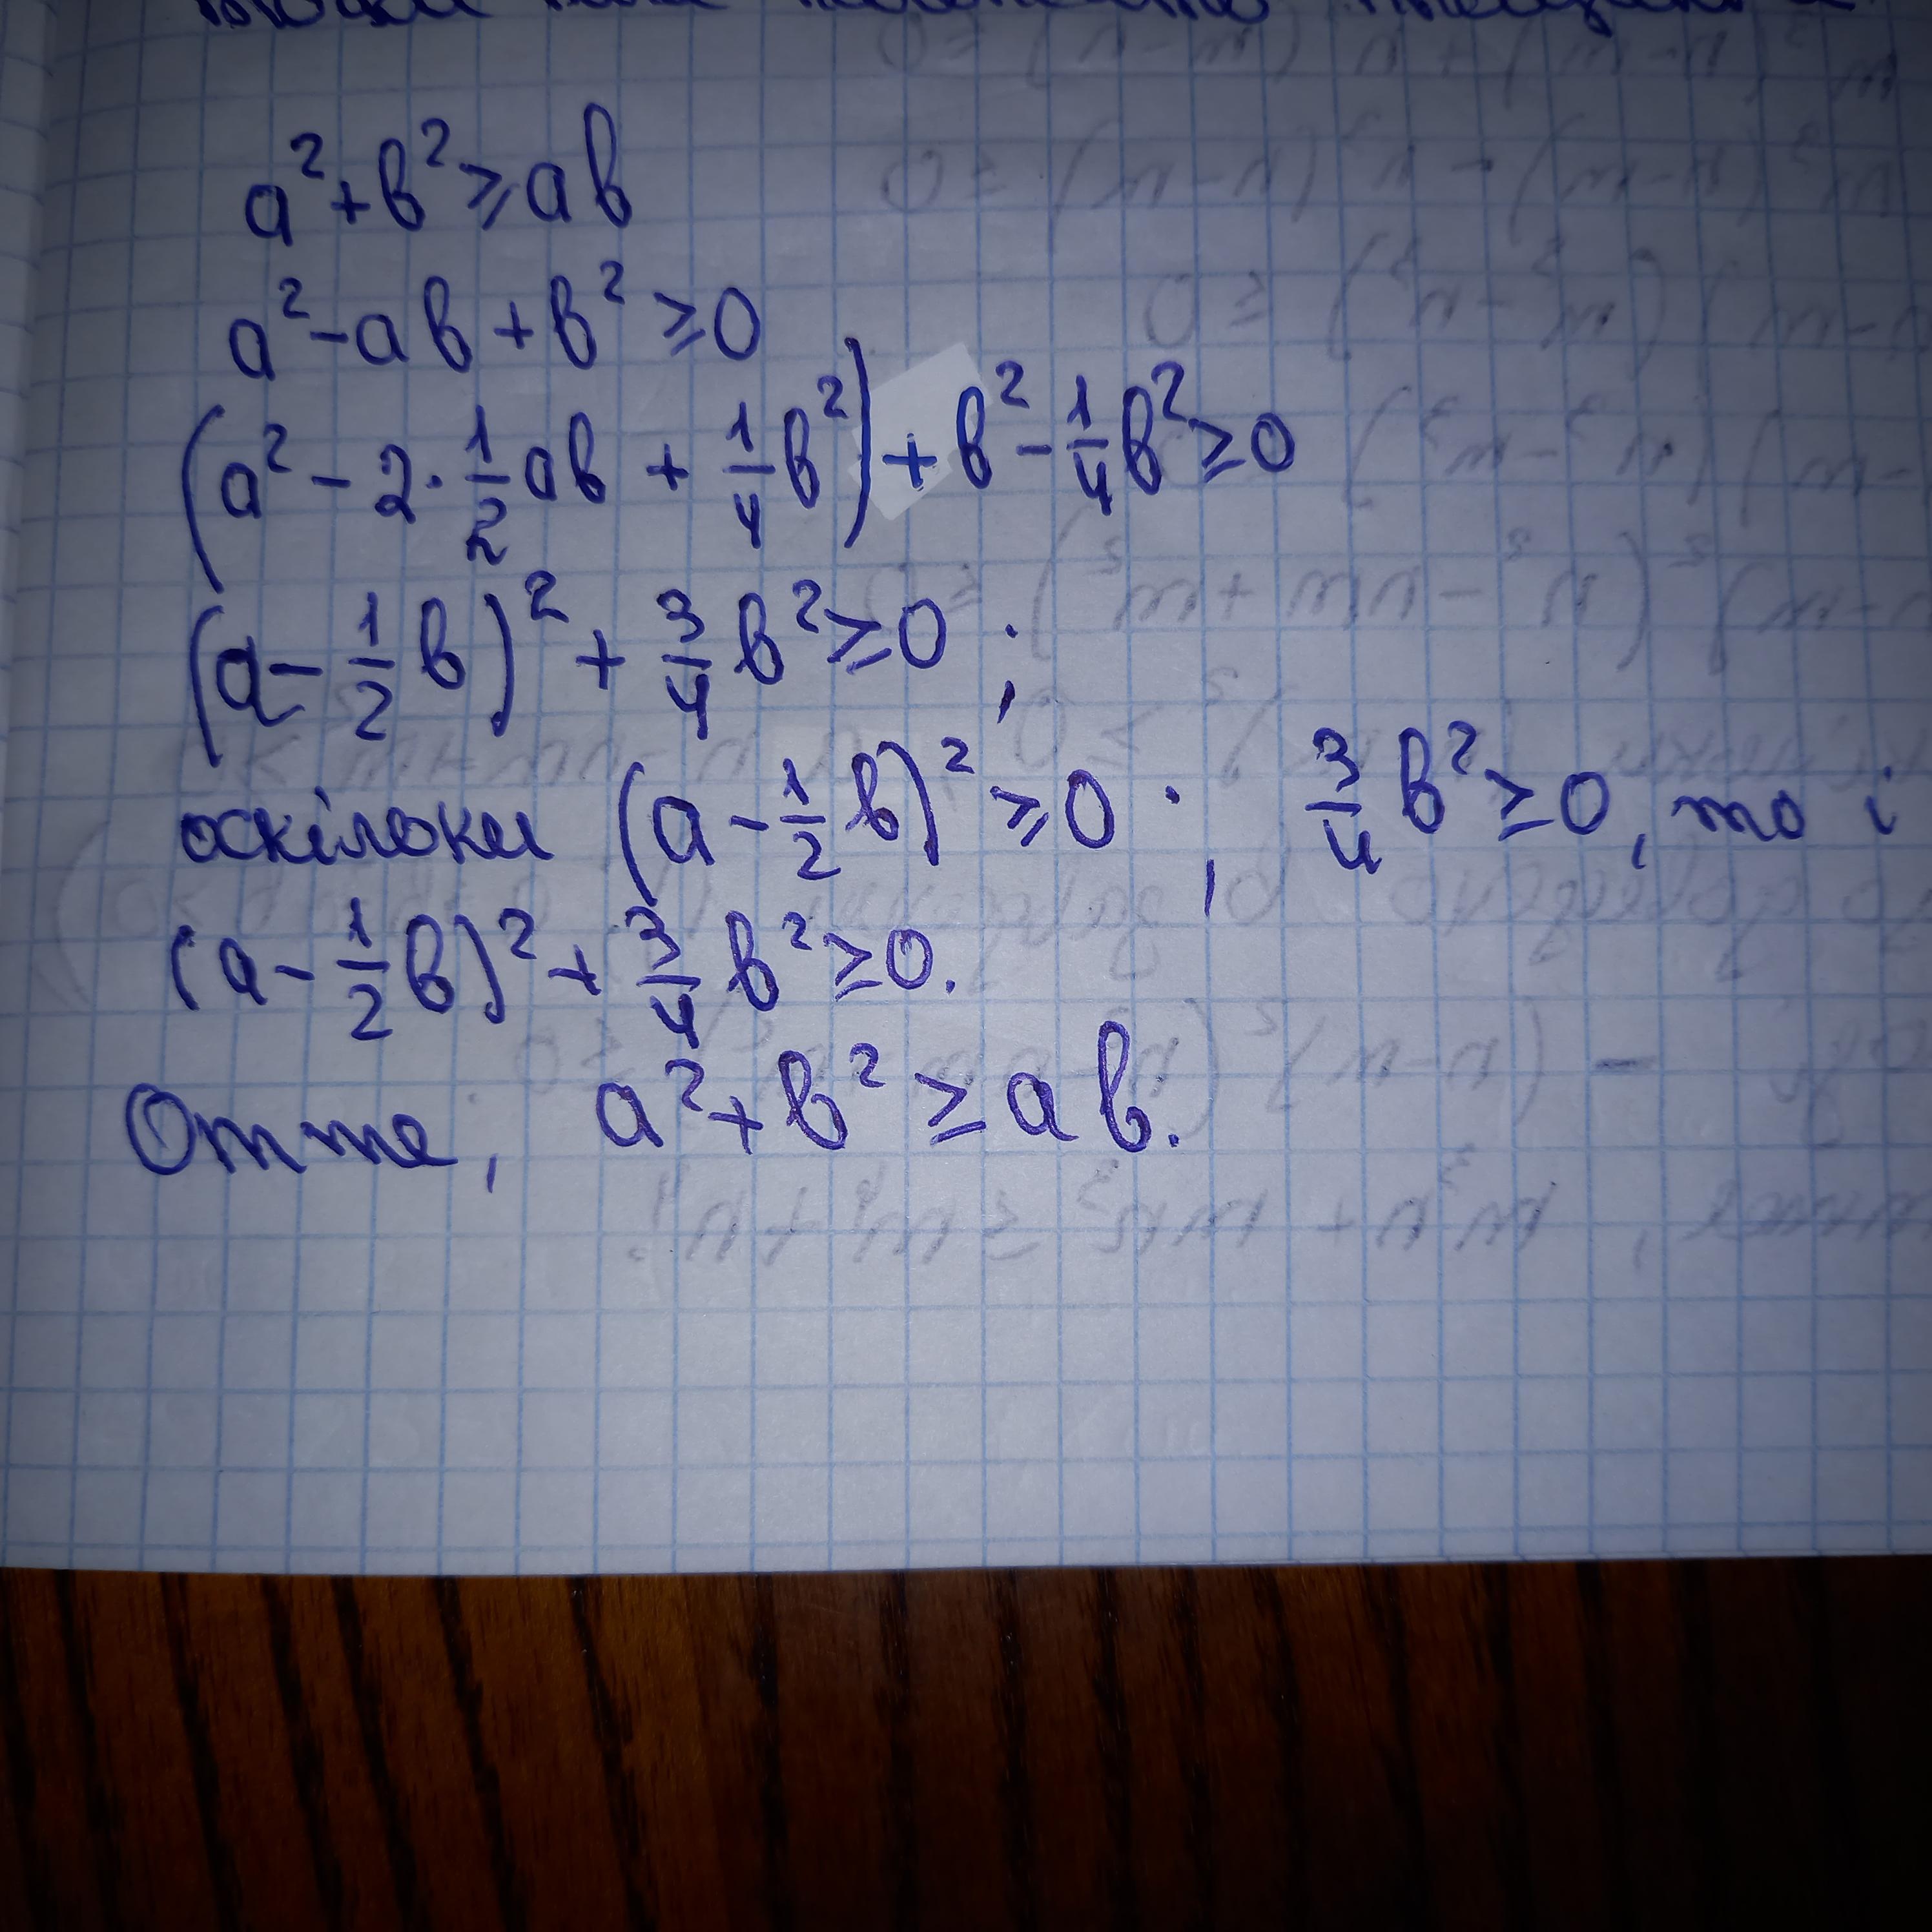 a²+b²≥ab
a²-ab+b²≥0
(a²-2·1/2ab+1/4b²)+b²-1/4b²≥0
(a-1/2b)²+3/4b²≥0;
оскільки (a-1/2b)²≥0; 3/4b²≥0, то і
(a-1/2b)²+3/4b²≥0.
Отже, a²+b²≥ab.